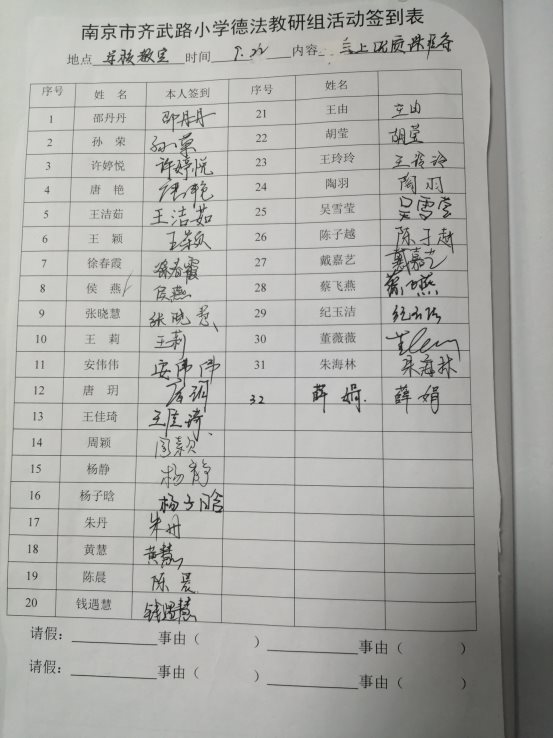 南京市齐武路小学德法教研组活动签到表
地点 录播教室 时间 9.22 内容 线上优质课准备
序号 姓 名 本人签到 序号 姓 名
1 邵丹丹 邵丹丹 21 王由 王由
2 孙 荣 孙荣 22 胡莹 胡莹
3 许婷悦 许婷悦 23 王玲玲 王玲玲
4 唐 艳 唐艳 24 陶羽 陶羽
5 王洁茹 王洁茹 25 吴雪莹 吴雪莹
6 王 颖 王颖 26 陈子越 陈子越
7 徐春霞 徐春霞 27 戴嘉艺 戴嘉艺
8 侯 燕 侯燕 28 蔡飞燕 蔡飞燕
9 张晓慧 张晓慧 29 纪玉洁 纪玉洁
10 王 莉 王莉 30 董薇薇
11 安伟伟 安伟伟 31 朱海林 朱海林
12 唐 玥 唐玥 32 薛娟. 薛娟
13 王佳琦 王佳琦
14 周颖 周颖
15 杨静 杨静
16 杨子晗 杨子晗
17 朱丹 朱丹
18 黄慧 黄慧
19 陈晨 陈晨
20 钱遇慧 钱遇慧
请假：事由（ ） 事由（ ）
请假：事由（ ） 事由（ ）